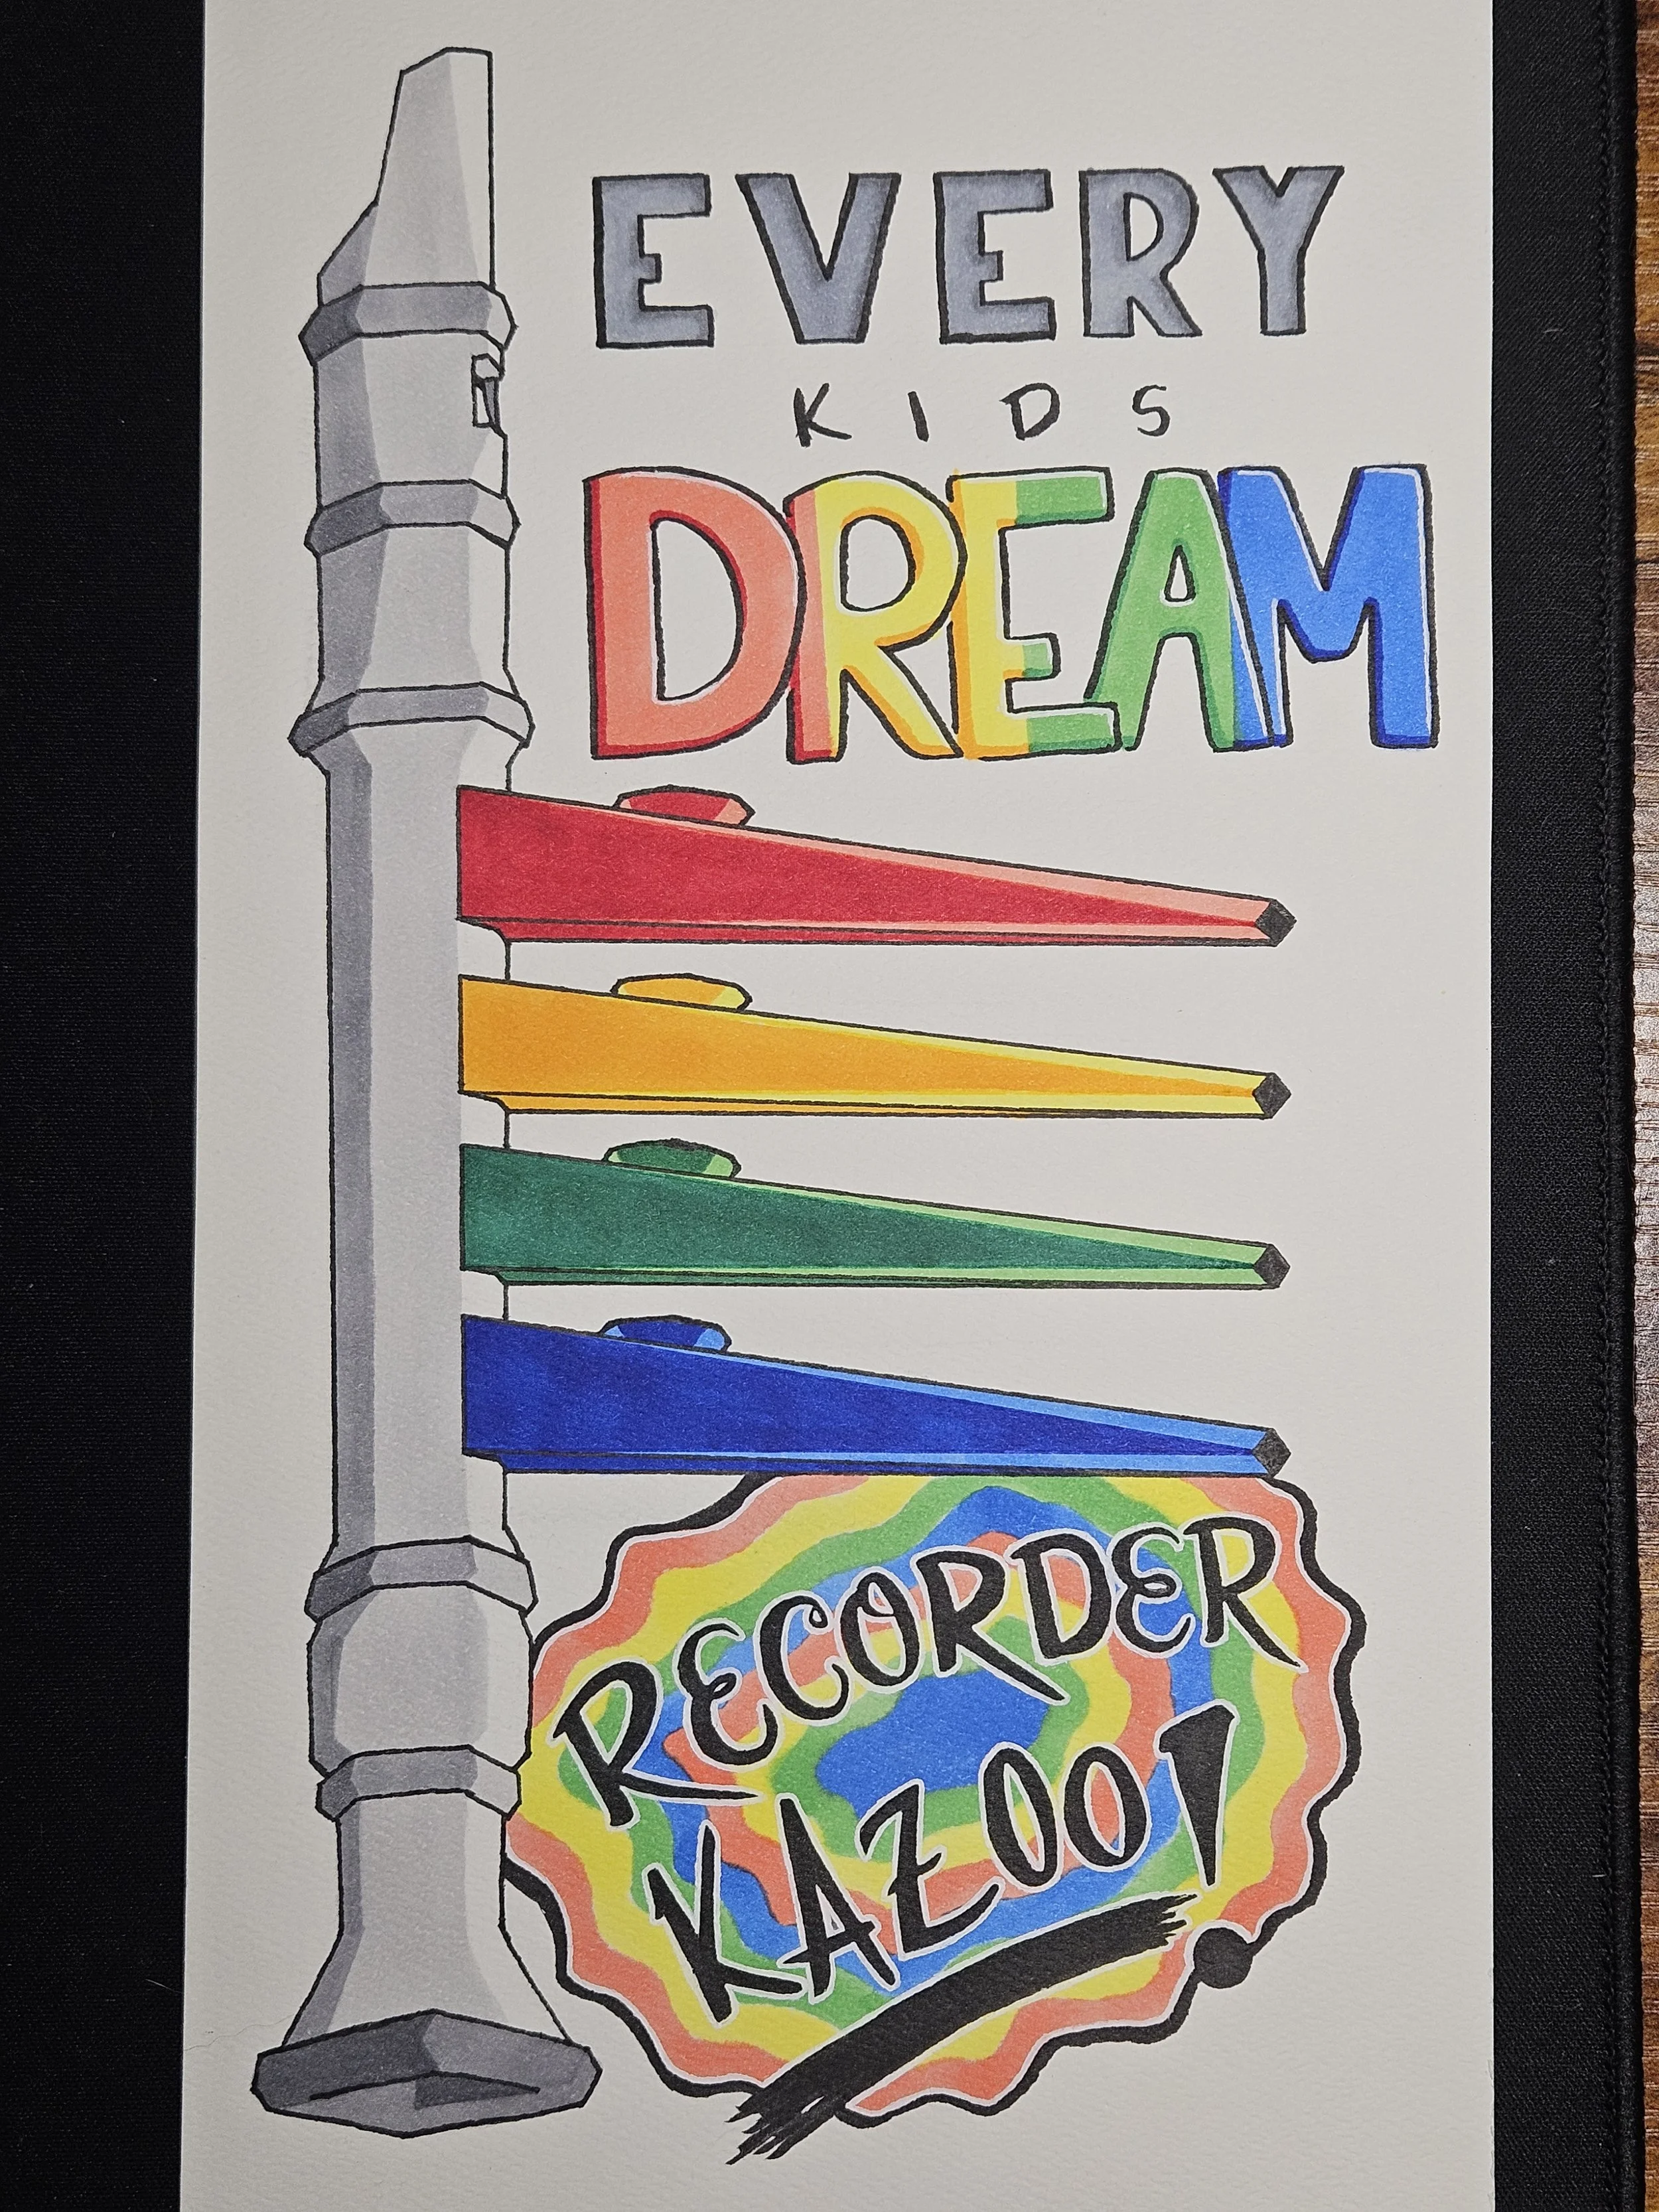 EVERY
KIDS
DREAM
RECORDER
KAZOO!